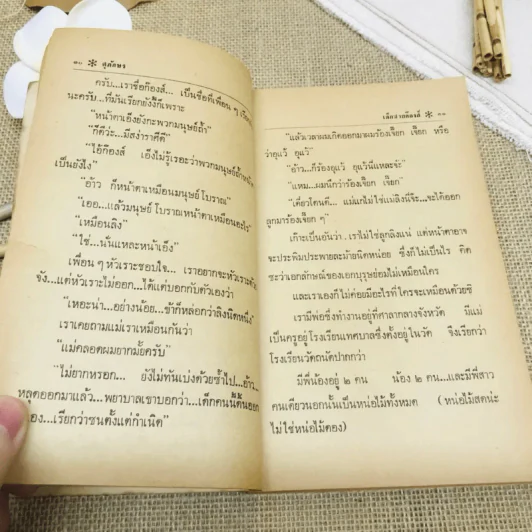 ๑๐ ✻ สุภักษร
ครับ...เราชื่อก๊องส์... เป็นชื่อที่เพื่อน ๆ เรียก
นะครับ...ที่มันเรียกยังงี้ก็เพราะ
"หน้าตาเอ็งยังกะพวกมนุษย์ถ้ำ"
"ก็ดีว่ะ...มีสง่าราศีดี"
"ไอ้ก๊องส์ เอ็งไม่รู้เรอะว่าพวกมนุษย์ถ้ำหน้าตา
เป็นยังไง"
"อ้าว ก็หน้าตาเหมือนมนุษย์โบราณ"
"เออ...แล้วมนุษย์โบราณหน้าตาเหมือนอะไร"
"เหมือนลิง"
"ใช่...นั่นแหละหน้าเอ็ง"
เพื่อน ๆ หัวเราะชอบใจ... เราอยากจะหัวเราะด้วย
จัง...แต่หัวเราะไม่ออก...ได้แต่บอกกับตัวเองว่า
"เหอะน่า...อย่างน้อย...ข้าก็หล่อกว่าลิงนิดหนึ่ง"
เราเคยถามแม่เราเหมือนกันว่า
"แม่คลอดผมยากมั้ยครับ"
"ไม่ยากหรอก... ยังไม่ทันเบ่งด้วยซ้ำไป...อ้าว
หลุดออกมาแล้ว...พยาบาลเขาบอกว่า...เด็กคนนี้ดิ้นออก
เอง...เรียกว่าซนตั้งแต่กำเนิด"
เด็กชายก๊องส์ ✻ ๑๑
"แล้วเวลาผมเกิดออกมาผมร้องเจี๊ยก เจี๊ยก หรือ
ว่าอุแว้ อุแว้"
"อ้าว...ก็ร้องอุแว้ อุแว้นี่แหละจ้ะ"
"แหม...ผมนึกว่าร้องเจี๊ยก เจี๊ยก"
"เดี๋ยวโดนตี... แม่แกไม่ใช่แม่ลิงนี่จ๊ะ...จะได้ออก
ลูกมาร้องเจี๊ยก ๆ"
เก๊าะเป็นอันว่า . เราไม่ใช่ลูกลิงแน่ แต่หน้าตาอาจ
จะประพิมประพายละม้ายนิดหน่อย ซึ่งก็ไม่เป็นไร คิด
ซะว่าเอกลักษณ์ของเอกบุรุษย่อมไม่เหมือนใคร
และเราเองก็ไม่ค่อยมีอะไรที่ใครจะเหมือนด้วยซิ
เรามีพ่อซึ่งทำงานอยู่ที่ศาลากลางจังหวัด มีแม่
เป็นครูอยู่โรงเรียนเทศบาลซึ่งตั้งอยู่ในวัด จึงเรียกว่า
โรงเรียนวัดถนัดปากกว่า
มีพี่น้องอยู่ ๒ คน น้อง ๒ คน...และมีพี่สาว
คนเดียวนอกนั้นเป็นหน่อไม้ทั้งหมด (หน่อไม้สดน่ะ
ไม่ใช่หน่อไม้ดอง)